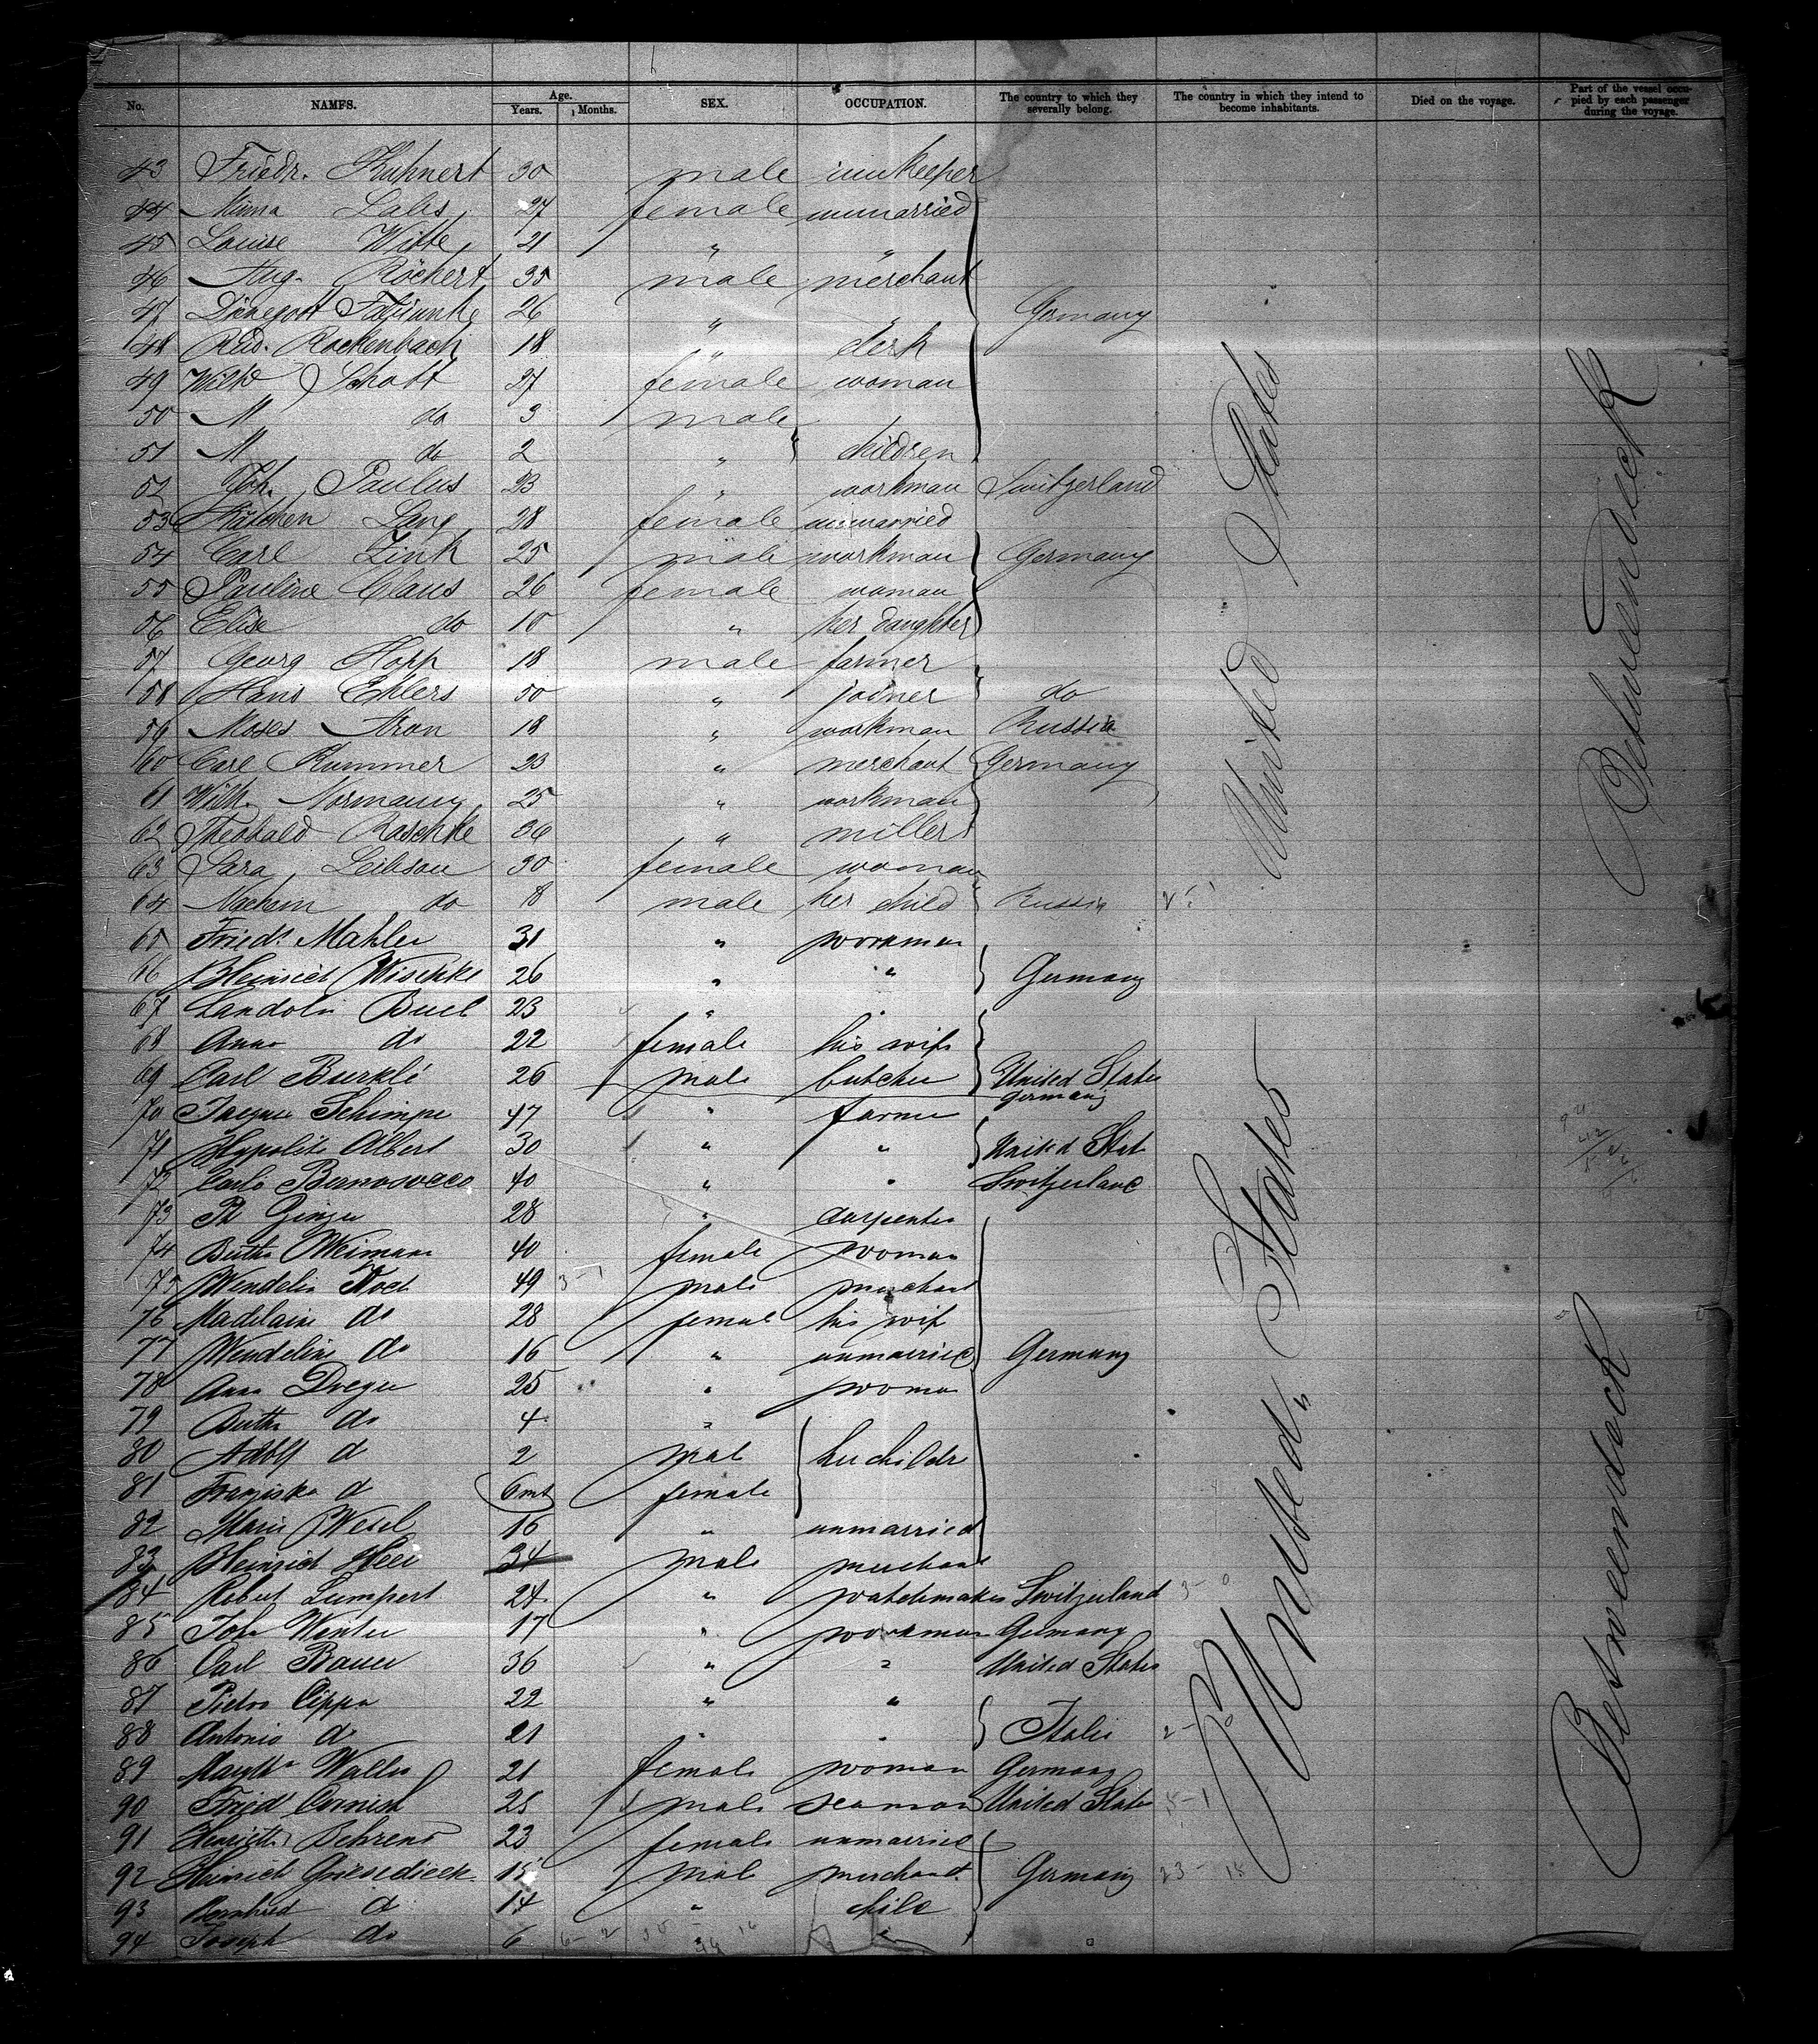 No. NAMES. Age. Years. Months. SEX. OCCUPATION. The country to which they severally belong. The country in which they intend to become inhabitants. Died on the voyage. Part of the vessel occupied by each passenger during the voyage.
43 Friedr. Kuhnert 30 male innkeeper
44 Minna Lahs 27 female unmarried
45 Louise Witte 21 " "
46 Aug. Röchert 35 male merchant
47 26 " " Germany
48 Rud. Rockenbach 18 " clerk
49 Wilh Schott 27 female woman
50 M do 3 male
51 M do 2 " children
52 Joh. Paulus 23 " workman Switzerland
53 Käthchen Lang 28 female unmarried
54 Carl Zink 25 male workman Germany
55 Pauline Claus 26 female woman
56 Elise do 10 " her daughter
57 Georg Hopp 18 male farmer
58 Hans Ehlers 50 " joiner do
59 Moses Aron 18 " workman Russia
60 Carl Kummer 23 " merchant Germany
61 Wilh. Normann 25 " workman
62 Theobald Raschke 36 " miller
63 Sara Leibson 30 female woman
64 Nachem do 8 male her child Russia
65 Friedr. Mahler 31 " workman
66 Heinrich Wischke 26 " " Germany
67 Landolin Buel 23 " "
68 Anna do 22 female his wife
69 Carl Burkli 26 male butcher United States
Germany
70 Schimpe 47 " farmer
71 Hypolite Albert 30 " " United Stat
72 Carlo 40 " " Switzerland
73 Ph Ginger 28 " carpenter
74 Bertha Weimann 40 female woman
75 Wendelin Noel 49 male merchant
76 Madelaine do 28 female his wife
77 Wendeline do 16 " unmarried Germany
78 Anna Dreger 25 " woman
79 Bertha do 4 "
80 Adolf d 2 male her childr
81 Franziska d 6mt female
82 Marie Wesel 16 " unmarried
83 Heinrich Heer 34 male merchant
84 Robert Lumpert 24 " watchmaker Switzerland
85 Joh Wenter 17 " workman Germany
86 Carl Bauer 36 " " United States
87 Pietro Cippa 22 " "
88 Antonio d 21 " " Italie
89 Martha Walter 21 female woman Germany
90 Fried Cornish 25 male seaman United States
91 Henriette Behrens 23 female unmarried
92 Heinrich Griesedieck 15 male merchant Germany
93 Bernhard d 14 " child
94 Joseph do 6 " "
United States
United States
Betweendeck
Betweendeck